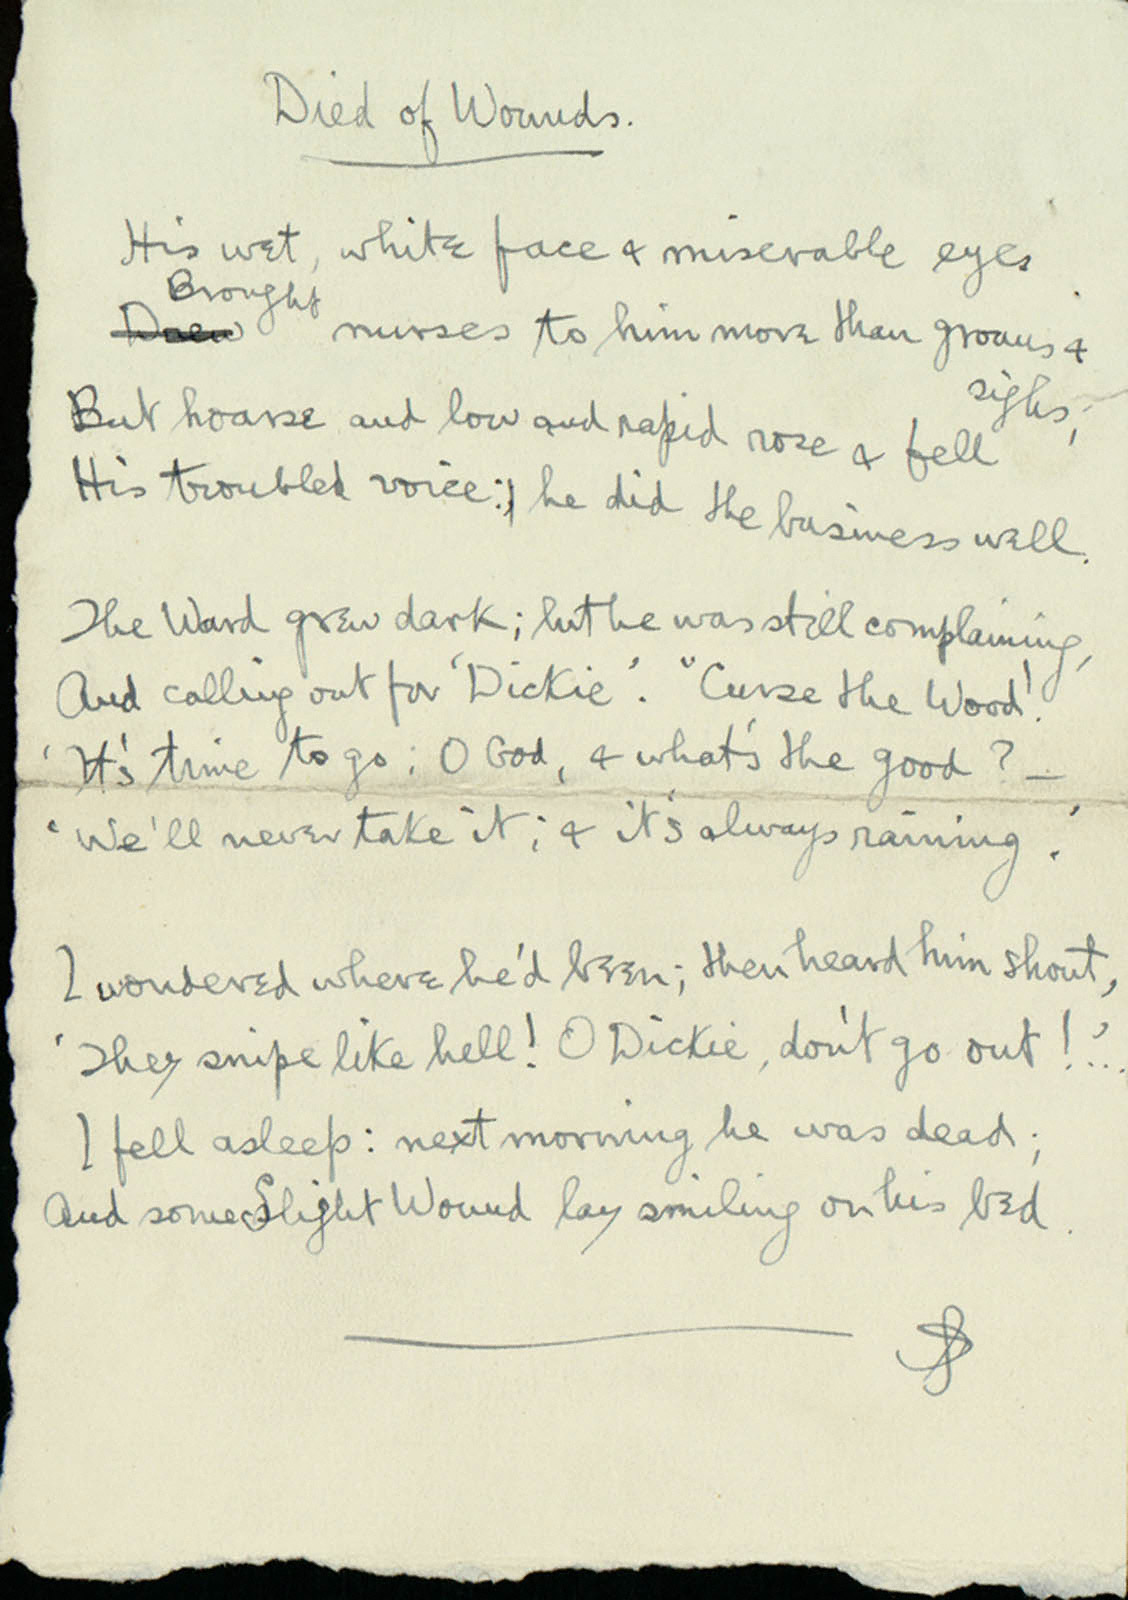 Died of Wounds.
His wet, white face & miserable eyes
Brought
Drew nurses to him more than groans &
sighs;
But hoarse and low and rapid rose & fell
His troubled voice:; he did the business well.
The Ward grew dark; but he was still complaining,
And calling out for 'Dickie'. "Curse the Wood!
'It's time to go; O God, & what's the good? —
'We'll never take it; & it's always raining.'
I wondered where he'd been; then heard him shout,
'They snipe like hell! O Dickie, don't go out!'...
I fell asleep: next morning he was dead;
And some Slight Wound lay smiling on his bed.